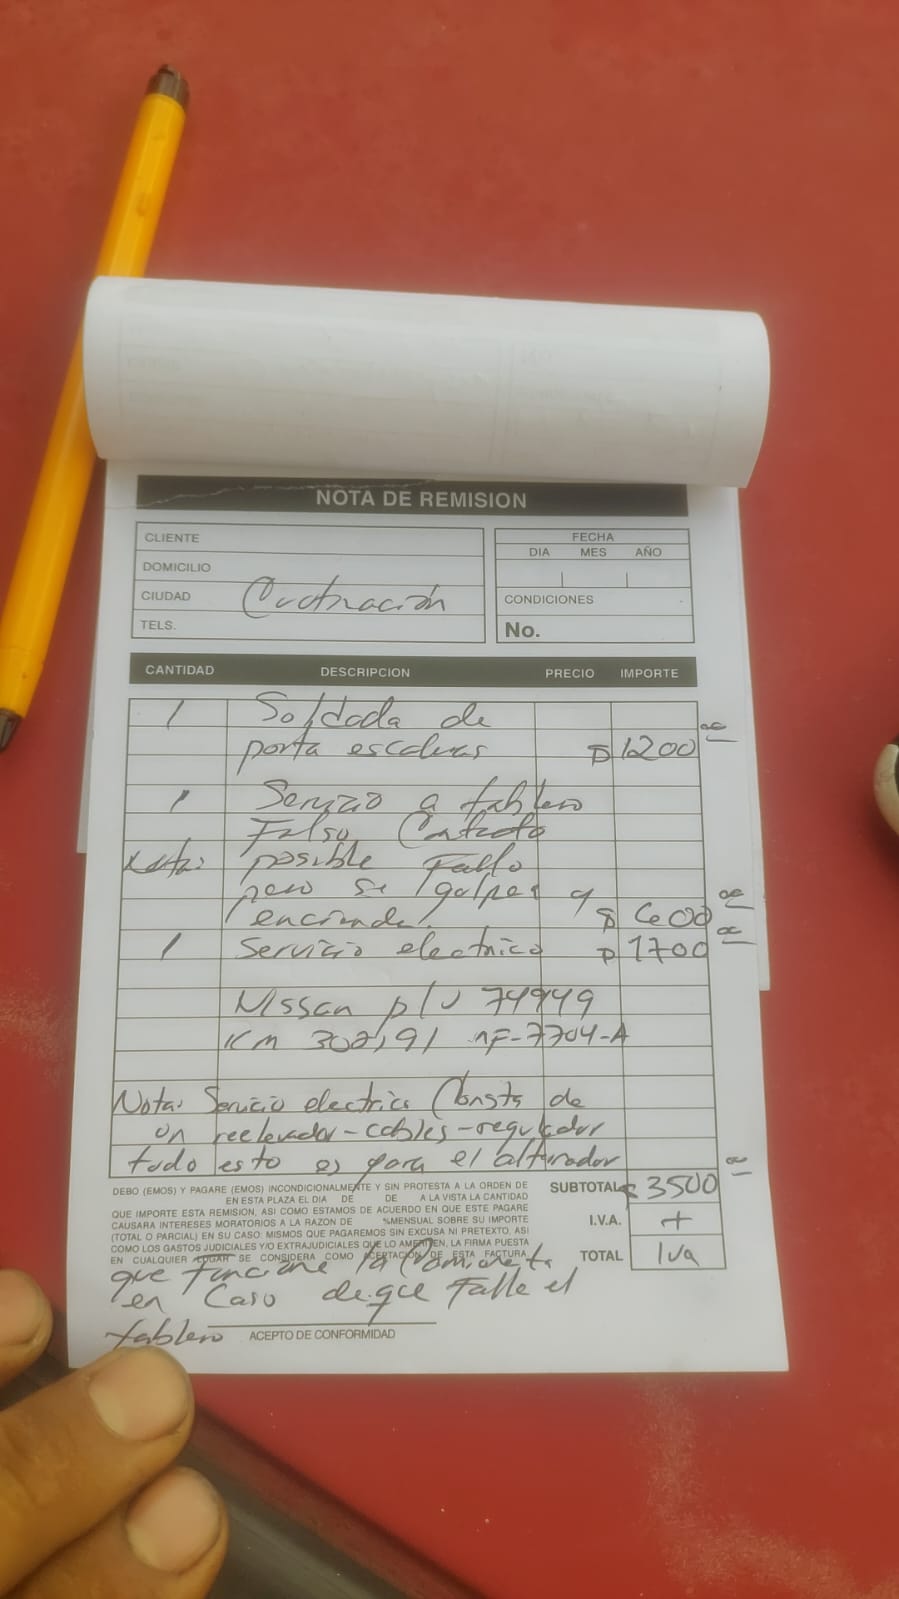 NOTA DE REMISION
CLIENTE
DOMICILIO
CIUDAD
TELS.
Cotización
FECHA
DIA MES AÑO
CONDICIONES
No.
CANTIDAD DESCRIPCION PRECIO IMPORTE
1 Soldada de
porta escaleras $ 1200 00
1 Servicio a tablero
Falso Contacto
Nota: posible Fallo
pero se golpea y
enciende. $ 600 00
1 Servicio electrico $ 1700 00
Nissan p/u 74949
KM 302,91 NF-7704-A
Nota: Servicio electrico Consta de
un reelevador-cables-regulador
todo esto es para el alternador
DEBO (EMOS) Y PAGARE (EMOS) INCONDICIONALMENTE Y SIN PROTESTA A LA ORDEN DE
EN ESTA PLAZA EL DIA DE DE A LA VISTA LA CANTIDAD
QUE IMPORTE ESTA REMISION, ASI COMO ESTAMOS DE ACUERDO EN QUE ESTE PAGARE
CAUSARA INTERESES MORATORIOS A LA RAZON DE %MENSUAL SOBRE SU IMPORTE
(TOTAL O PARCIAL) EN SU CASO: MISMOS QUE PAGAREMOS SIN EXCUSA NI PRETEXTO, ASI
COMO LOS GASTOS JUDICIALES Y/O EXTRAJUDICIALES QUE LO AMERITEN, LA FIRMA PUESTA
EN CUALQUIER LUGAR SE CONSIDERA COMO ACEPTACION DE ESTA FACTURA.
SUBTOTAL $ 3500 00
I.V.A. +
TOTAL Iva
que funcione la Camioneta
en Caso de que Falle el
tablero
ACEPTO DE CONFORMIDAD